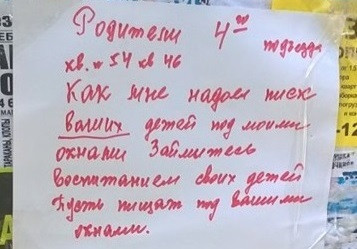 Родители 4го
подъезда
кв. 54 кв 46
Как мне надоел писк
ваших детей под моими
окнами Займитесь
воспитанием своих детей
Пусть пищат под вашими
окнами.